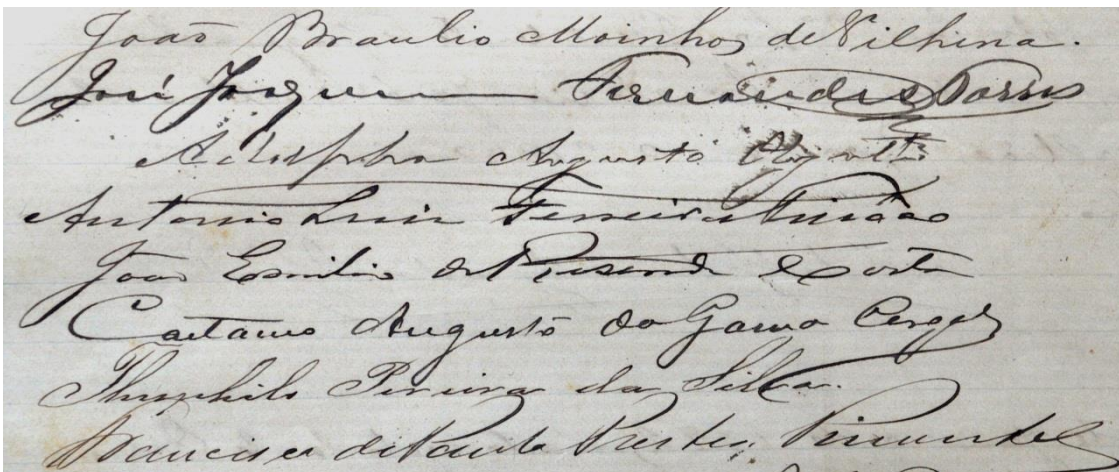 João Braulio Moinhos de Vilhena.
José Joaquim Fernandes Torres
Adolpho Augusto
Antonio Luiz Ferreira Tinôco
João Emilio de Resende Costa
Caetano Augusto da Gama Cerqr
Theophilo Pereira da Silva.
Francisco de Paula Prestes Pimentel